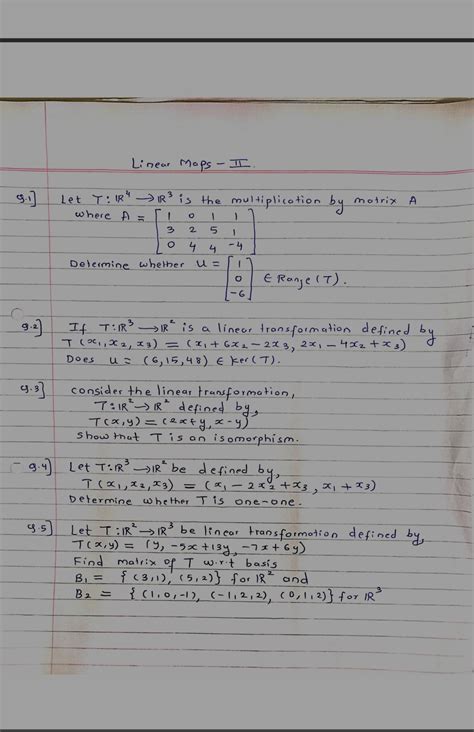 Linear Maps - II.
Q.1] Let T: IR⁴ → IR³ is the multiplication by matrix A
where A = [1 0 1 1
3 2 5 1
0 4 4 -4]
Determine whether u = [1
0
-6] ∈ Range (T).
Q.2] If T: IR³ → IR² is a linear transformation defined by
T(x₁, x₂, x₃) = (x₁ + 6x₂ - 2x₃, 2x₁ - 4x₂ + x₃)
Does u = (6, 15, 48) ∈ Ker(T).
Q.3] consider the linear transformation,
T: IR² → IR² defined by,
T(x,y) = (2x+y, x-y)
show that T is an isomorphism.
Q.4] Let T: IR³ → IR² be defined by,
T(x₁, x₂, x₃) = (x₁ - 2x₂ + x₃, x₁ + x₃)
Determine whether T is one-one.
Q.5] Let T: IR² → IR³ be linear transformation defined by,
T(x,y) = (y, -5x + 13y, -7x + 6y)
Find matrix of T w.r.t basis
B₁ = {(3,1), (5,2)} for IR² and
B₂ = {(1,0,-1), (-1,2,2), (0,1,2)} for IR³